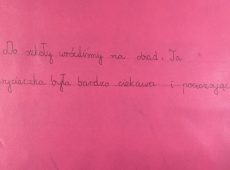 Do szkoły wróciliśmy na obiad. Ta
wycieczka była bardzo ciekawa i pouczając